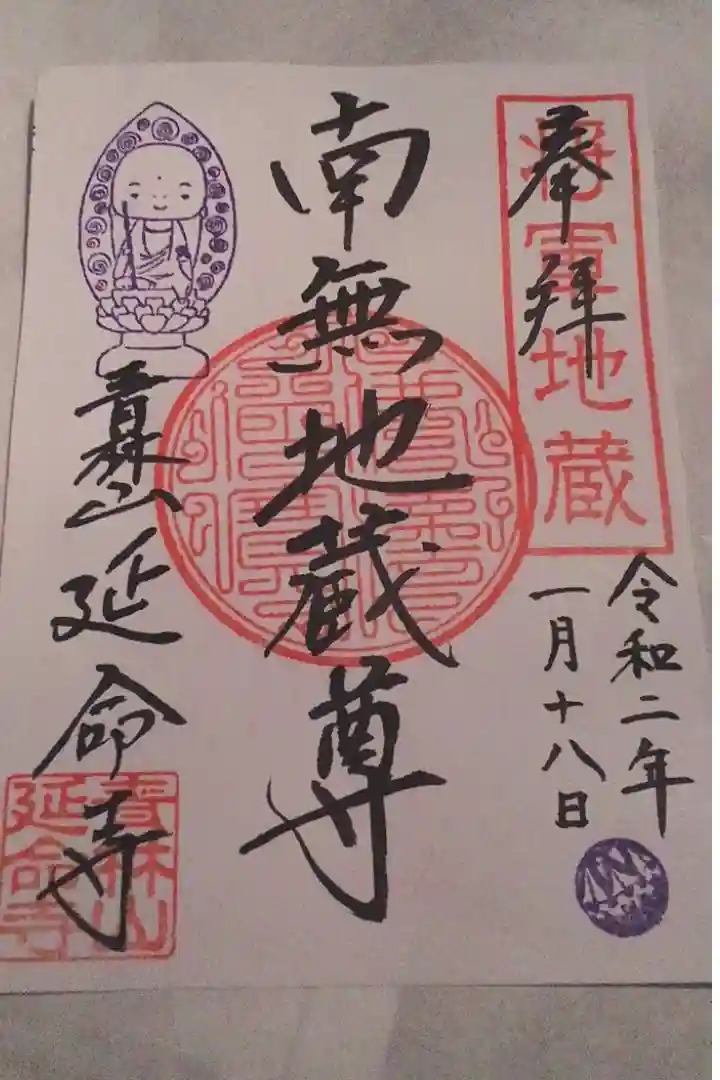 奉拝
將軍地蔵
令和二年
一月十八日
南無地蔵尊
青森山延命寺
青森山
延命寺